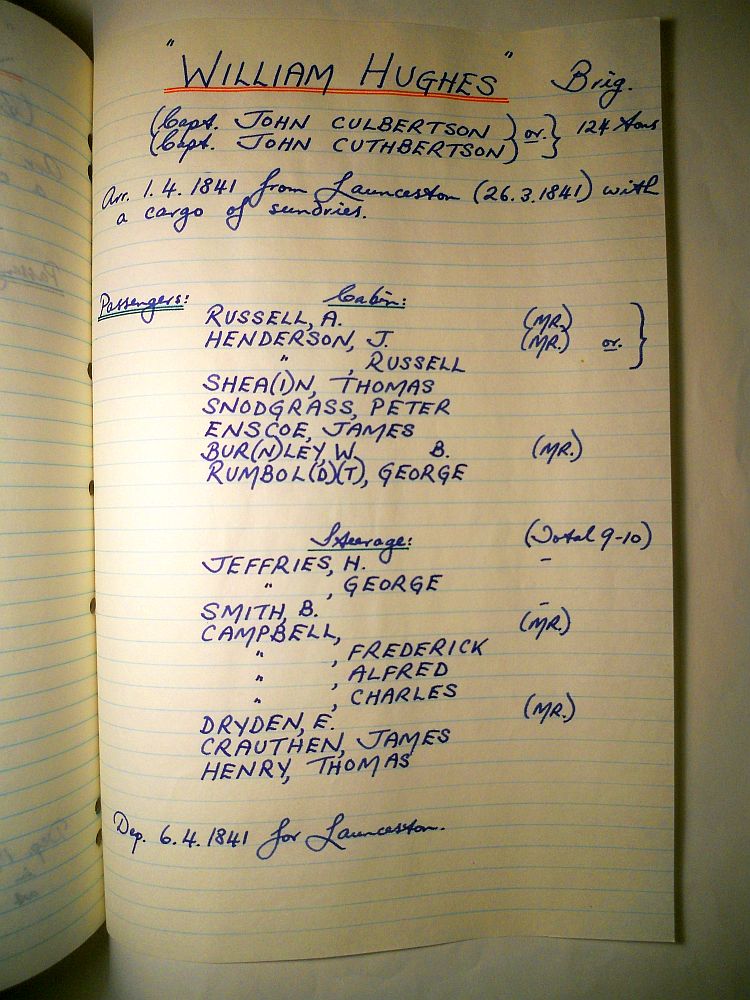 "WILLIAM HUGHES" Brig.
(Capt. JOHN CULBERTSON) or. } 124 tons
(Capt. JOHN CUTHBERTSON)
Arr. 1.4.1841 from Launceston (26.3.1841) with
a cargo of sundries.
Passengers: Cabin:
RUSSELL, A. (MR.)
HENDERSON, J. (MR.) or. }
" , RUSSELL
SHEA(I)N, THOMAS
SNODGRASS, PETER
ENSCOE, JAMES
BUR(N)LEY, W. B. (MR.)
RUMBOL(D)(T), GEORGE
Steerage: (Total 9-10)
JEFFRIES, H. -
" , GEORGE
SMITH, B. -
CAMPBELL, (MR.)
" , FREDERICK
" , ALFRED
" , CHARLES
DRYDEN, E. (MR.)
CRAUTHEN, JAMES
HENRY, THOMAS
Dep. 6.4.1841 for Launceston.